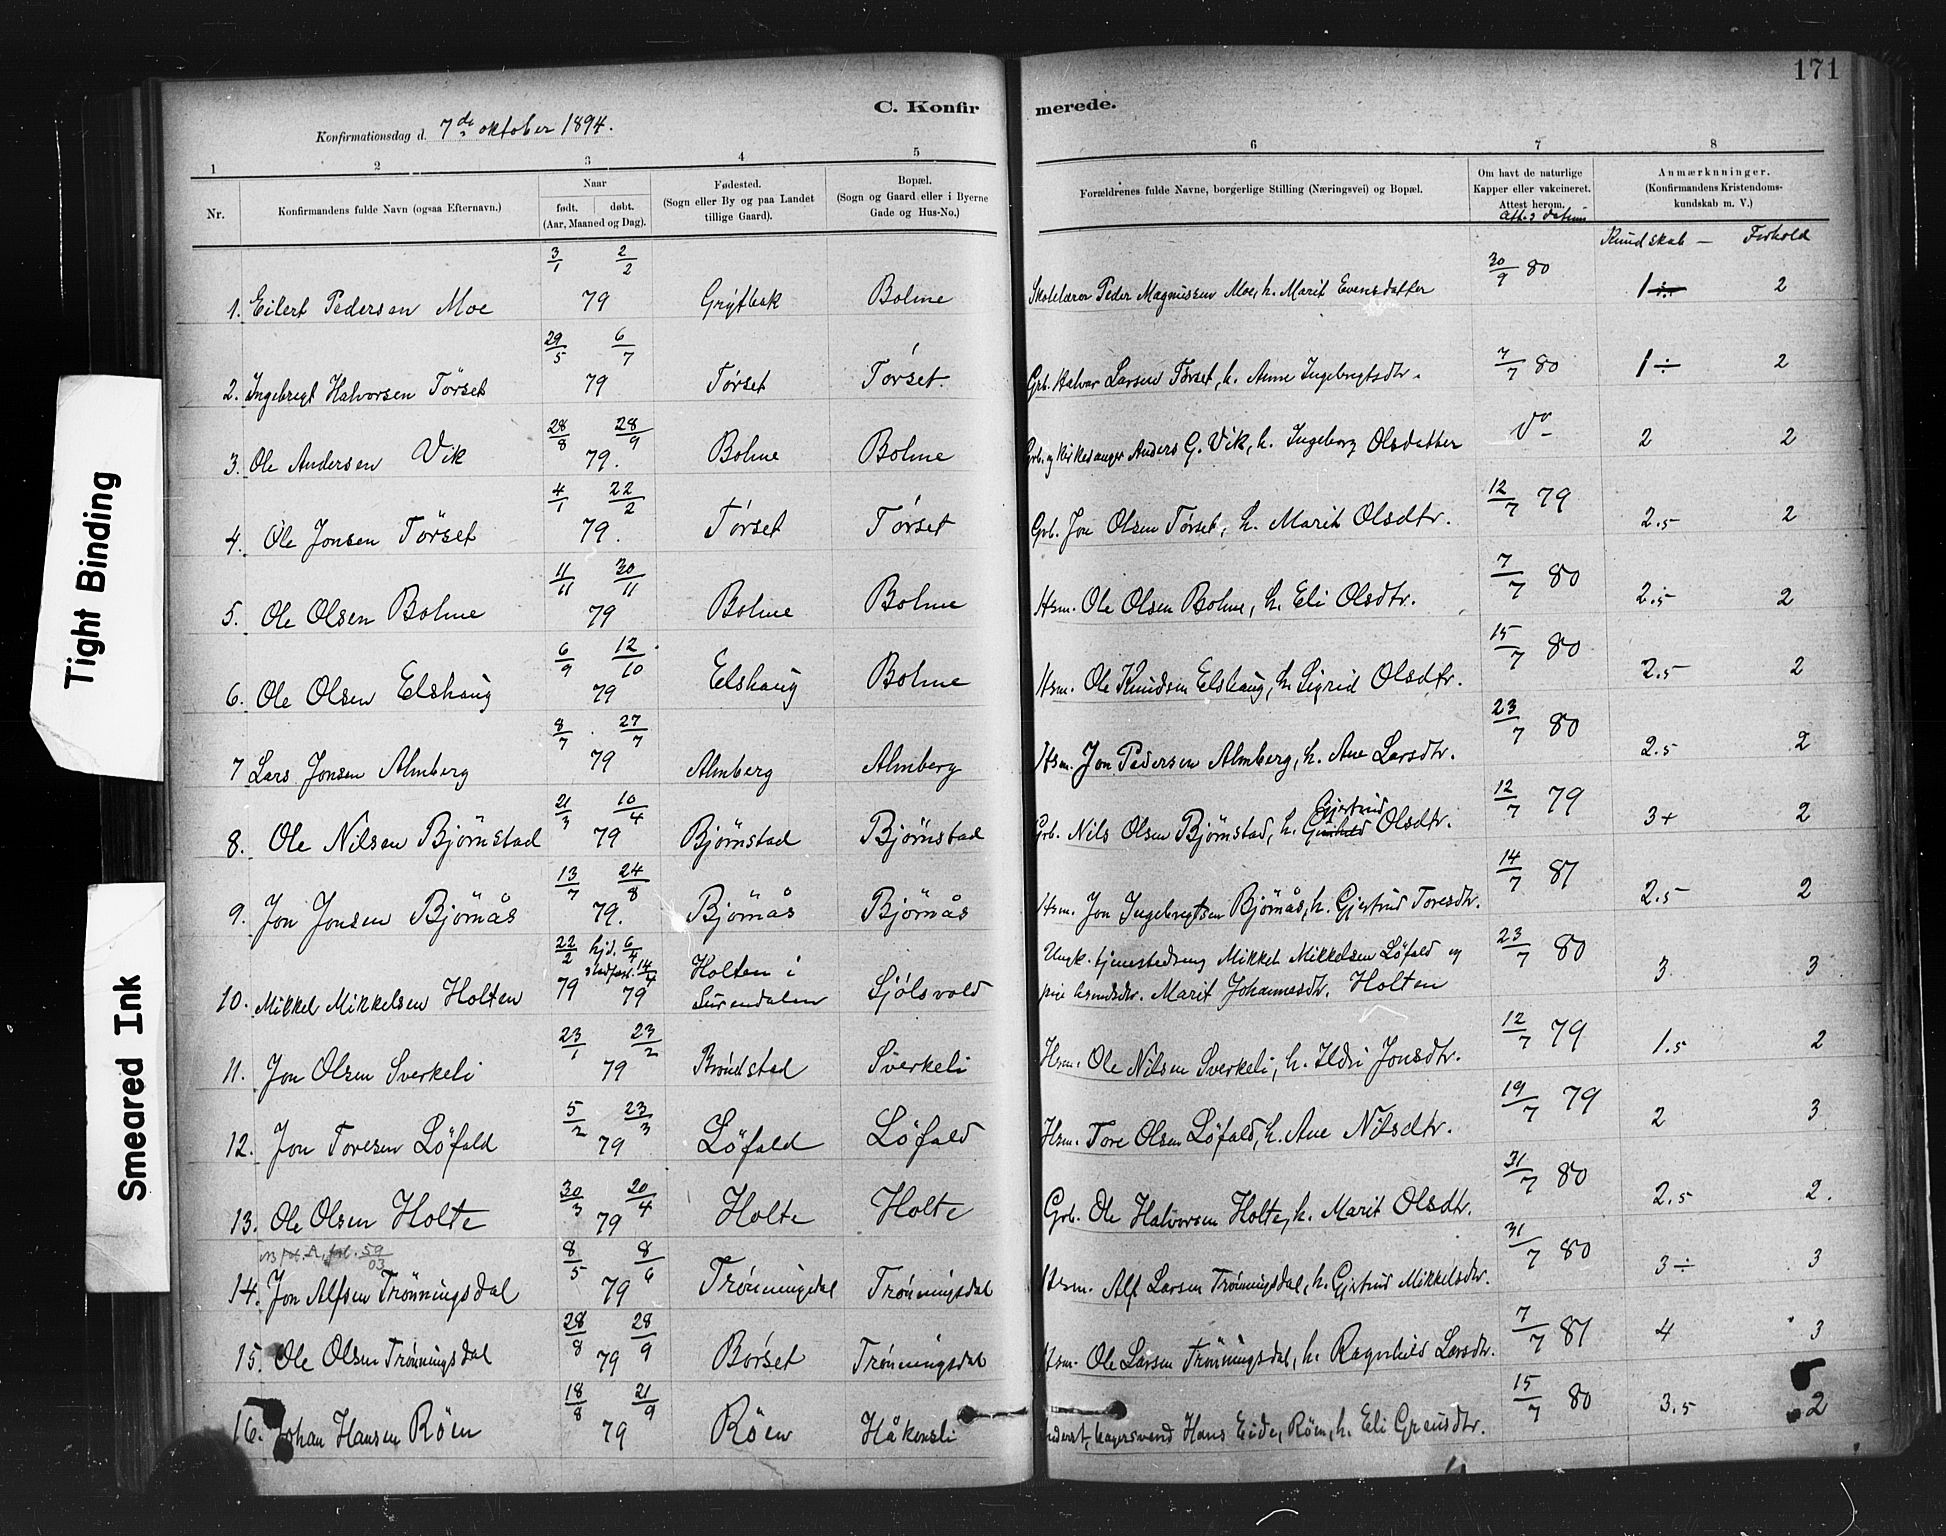 171
C. Konfir merede.
Konfirmationsdag d. 7de oktober 1894.
1 2 3 4 5 6 7 8
Nr. Konfirmandens fulde Navn (ogsaa Efternavn.) Naar født. døbt. (Aar, Maaned og Dag). Fødested. (Sogn eller By og paa Landet tillige Gaard). Bopæl. (Sogn og Gaard eller i Byerne Gade og Hus-No.) Forældrenes fulde Navne, borgerlige Stilling (Næringsvei) og Bopæl. Om havt de naturlige Kapper eller vakcineret. Attest herom. Anmærkninger. (Konfirmandens Kristendoms-kundskab m. V.)
Kundskab – Forhold
1. Eilert Pedersen Moe 3/1 2/2 79 Grytbak Bolme Skolelærer Peder Magnussen Moe, h. Marit Evensdatter 30/9 80 1 2
2. Ingebrigt Halvorsen Törset 29/5 6/7 79 Tørset Tørset. Grb. Halvor Larsen Tørset, h. Anne Ingebrigtsdtr. 7/7 80 1 ÷ 2
3. Ole Andersen Vik 28/8 28/9 79. Bolme Bolme Grb. og Kirkesanger Anders G. Vik, h. Ingeborg Olsdatter 2 2
4. Ole Jonsen Törset 4/1 22/2 79. Tørset Tørset Grb. Jon Olsen Tørset, h. Marit Olsdtr. 12/7 79 2.5 2
5. Ole Olsen Bolme 11/11 30/11 79 Bolme Bolme Hsm. Ole Olsen Bolme, h. Eli Olsdtr. 7/7 80 2.5 2
6. Ole Olsen Elshaug 6/9 12/10 79 Elshaug Bolme Hsm. Ole Knudsen Elshaug, h. Sigrid Olsdtr. 15/7 80 2.5 2
7 Lars Jonsen Almberg 8/7 27/7 79 Almberg Almberg Hsm. Jon Pedersen Almberg, h. Ane Larsdtr. 23/7 80 2.5 2
8. Ole Nilsen Bjørnstad 21/3 10/4 79 Bjørnstad Bjørnstad Grb. Nils Olsen Bjørnstad, h. Gjertrud Olsdtr. 12/7 79 3+ 2
9. Jon Jonsen Bjørnås 13/7 24/8 79. Bjørnås Bjørnås Hsm. Jon Ingebrigtsen Bjørnås, h. Gjertrud Toresdtr. 14/7 87 2.5 2
10. Mikkel Mikkelsen Holten 22/2 79 hjd. 6/4 stadfæst. 14/4 79 Holten i Surendalen Sjølsvold Ungk. tjenestedreng Mikkel Mikkelsen Löfald og pike Marit Johannesdtr. Holten 23/7 80 3 3
11. Jon Olsen Sverkeli 23/1 23/2 79 Brøndstad Sverkeli Hsm. Ole Nilsen Sverkeli, h. Ildri Jonsdtr. 12/7 79 1.5 2
12. Jon Toresen Löfald 5/2 23/3 79 Löfald Löfald Hsm. Tore Olsen Löfald, h. Ane Nilsdtr. 19/7 79 2 3
13. Ole Olsen Holte 30/3 20/4 79 Holte Holte Grb. Ole Halvorsen Holte, h. Marit Olsdtr. 31/7 80 2.5 2.
59/03
14. Jon Alfsen Trønningsdal 8/5 8/6 79 Trønningsdal Trønningsdal Hsm. Alf Larsen Trønningsdal, h. Gjertrud Mikkelsdtr. 31/7 80 3 ÷ 3
15. Ole Olsen Trønningsdal 28/8 28/9 79 Børset Trønningsdal Hsm. Ole Larsen Trønningsdal, h. Ragnhild Larsdtr. 7/7 87 4 3
16. Johan Hansen Röen 18/8 21/9 79 Röen Håkensli Hans Eide, Röen, h. Eli 15/7 80 3.5 2
Tight Binding
Smeared Ink